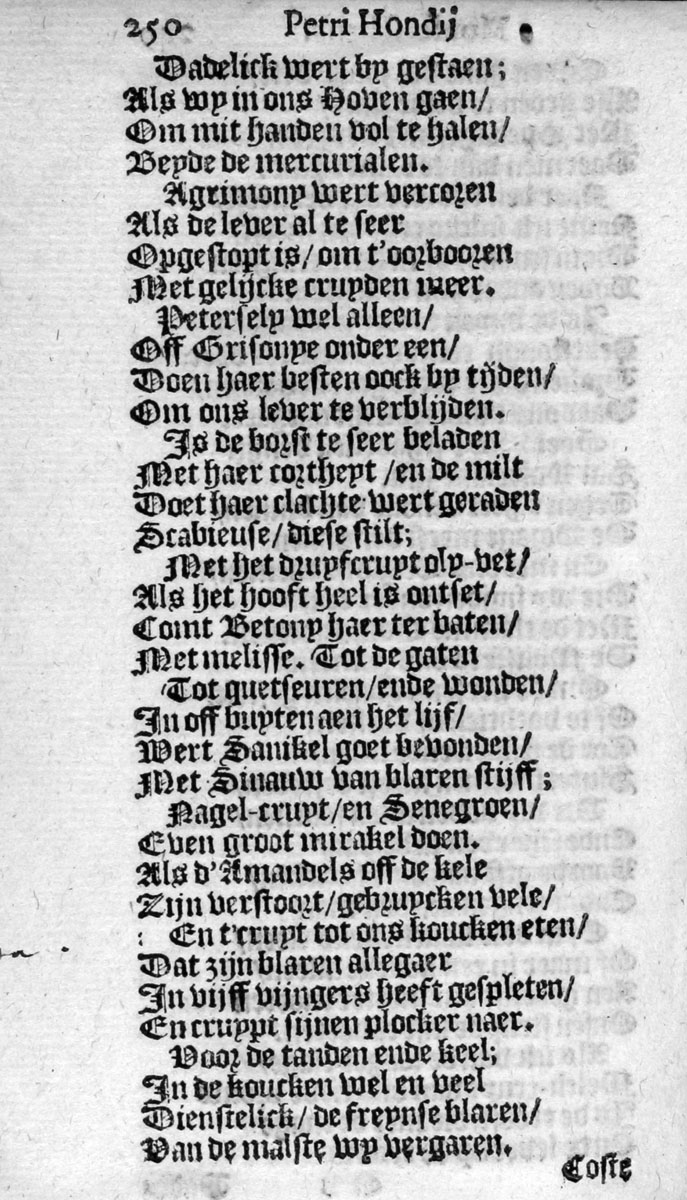 250 Petri Hondij
Dadelick wert by gestaen;
Als wy in ons Hoven gaen/
Om mit handen vol te halen/
Beyde de mercurialen.
Agrimony wert vercoren
Als de lever al te seer
Opgestopt is/ om t'oorbooren
Met gelijcke cruyden meer.
Petersely wel alleen/
Off Grisonye onder een/
Doen haer besten oock by tijden/
Om ons lever te verblijden.
Is de borst te seer beladen
Met haer cortheyt /en de milt
Doet haer clachte wert geraden
Scabieuse/ diese stilt;
Met het druyfcruyt oly-vet/
Als het hooft heel is ontset/
Comt Betony haer ter baten/
Met melisse. Tot de gaten
Tot quetseuren/ende wonden/
In off buyten aen het lijf/
Wert Sanikel goet bevonden/
Met Sinauw van blaren stijff;
Nagel-cruyt/en Senegroen/
Even groot mirakel doen.
Als d'Amandels off de kele
Zijn verstoort/gebruycken vele/
En t'cruyt tot ons koucken eten/
Dat zijn blaren allegaer
In vijff vijngers heeft gespleten/
En cruypt sijnen plocker naer.
Voor de tanden ende keel;
In de koucken wel en veel
Dienstelick/ de freynse blaren/
Van de malste wy vergaren.
Coste